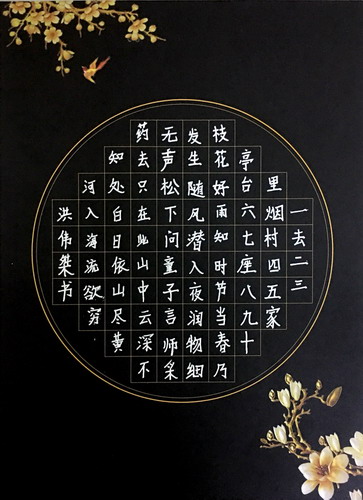 一去二三
里烟村四五家
亭台六七座八九十
枝花好雨知时节当春乃
发生随风潜入夜润物细
无声松下问童子言师采
药去只在此山中云深不
知处白日依山尽黄
河入海流欲穷
洪伟桀书